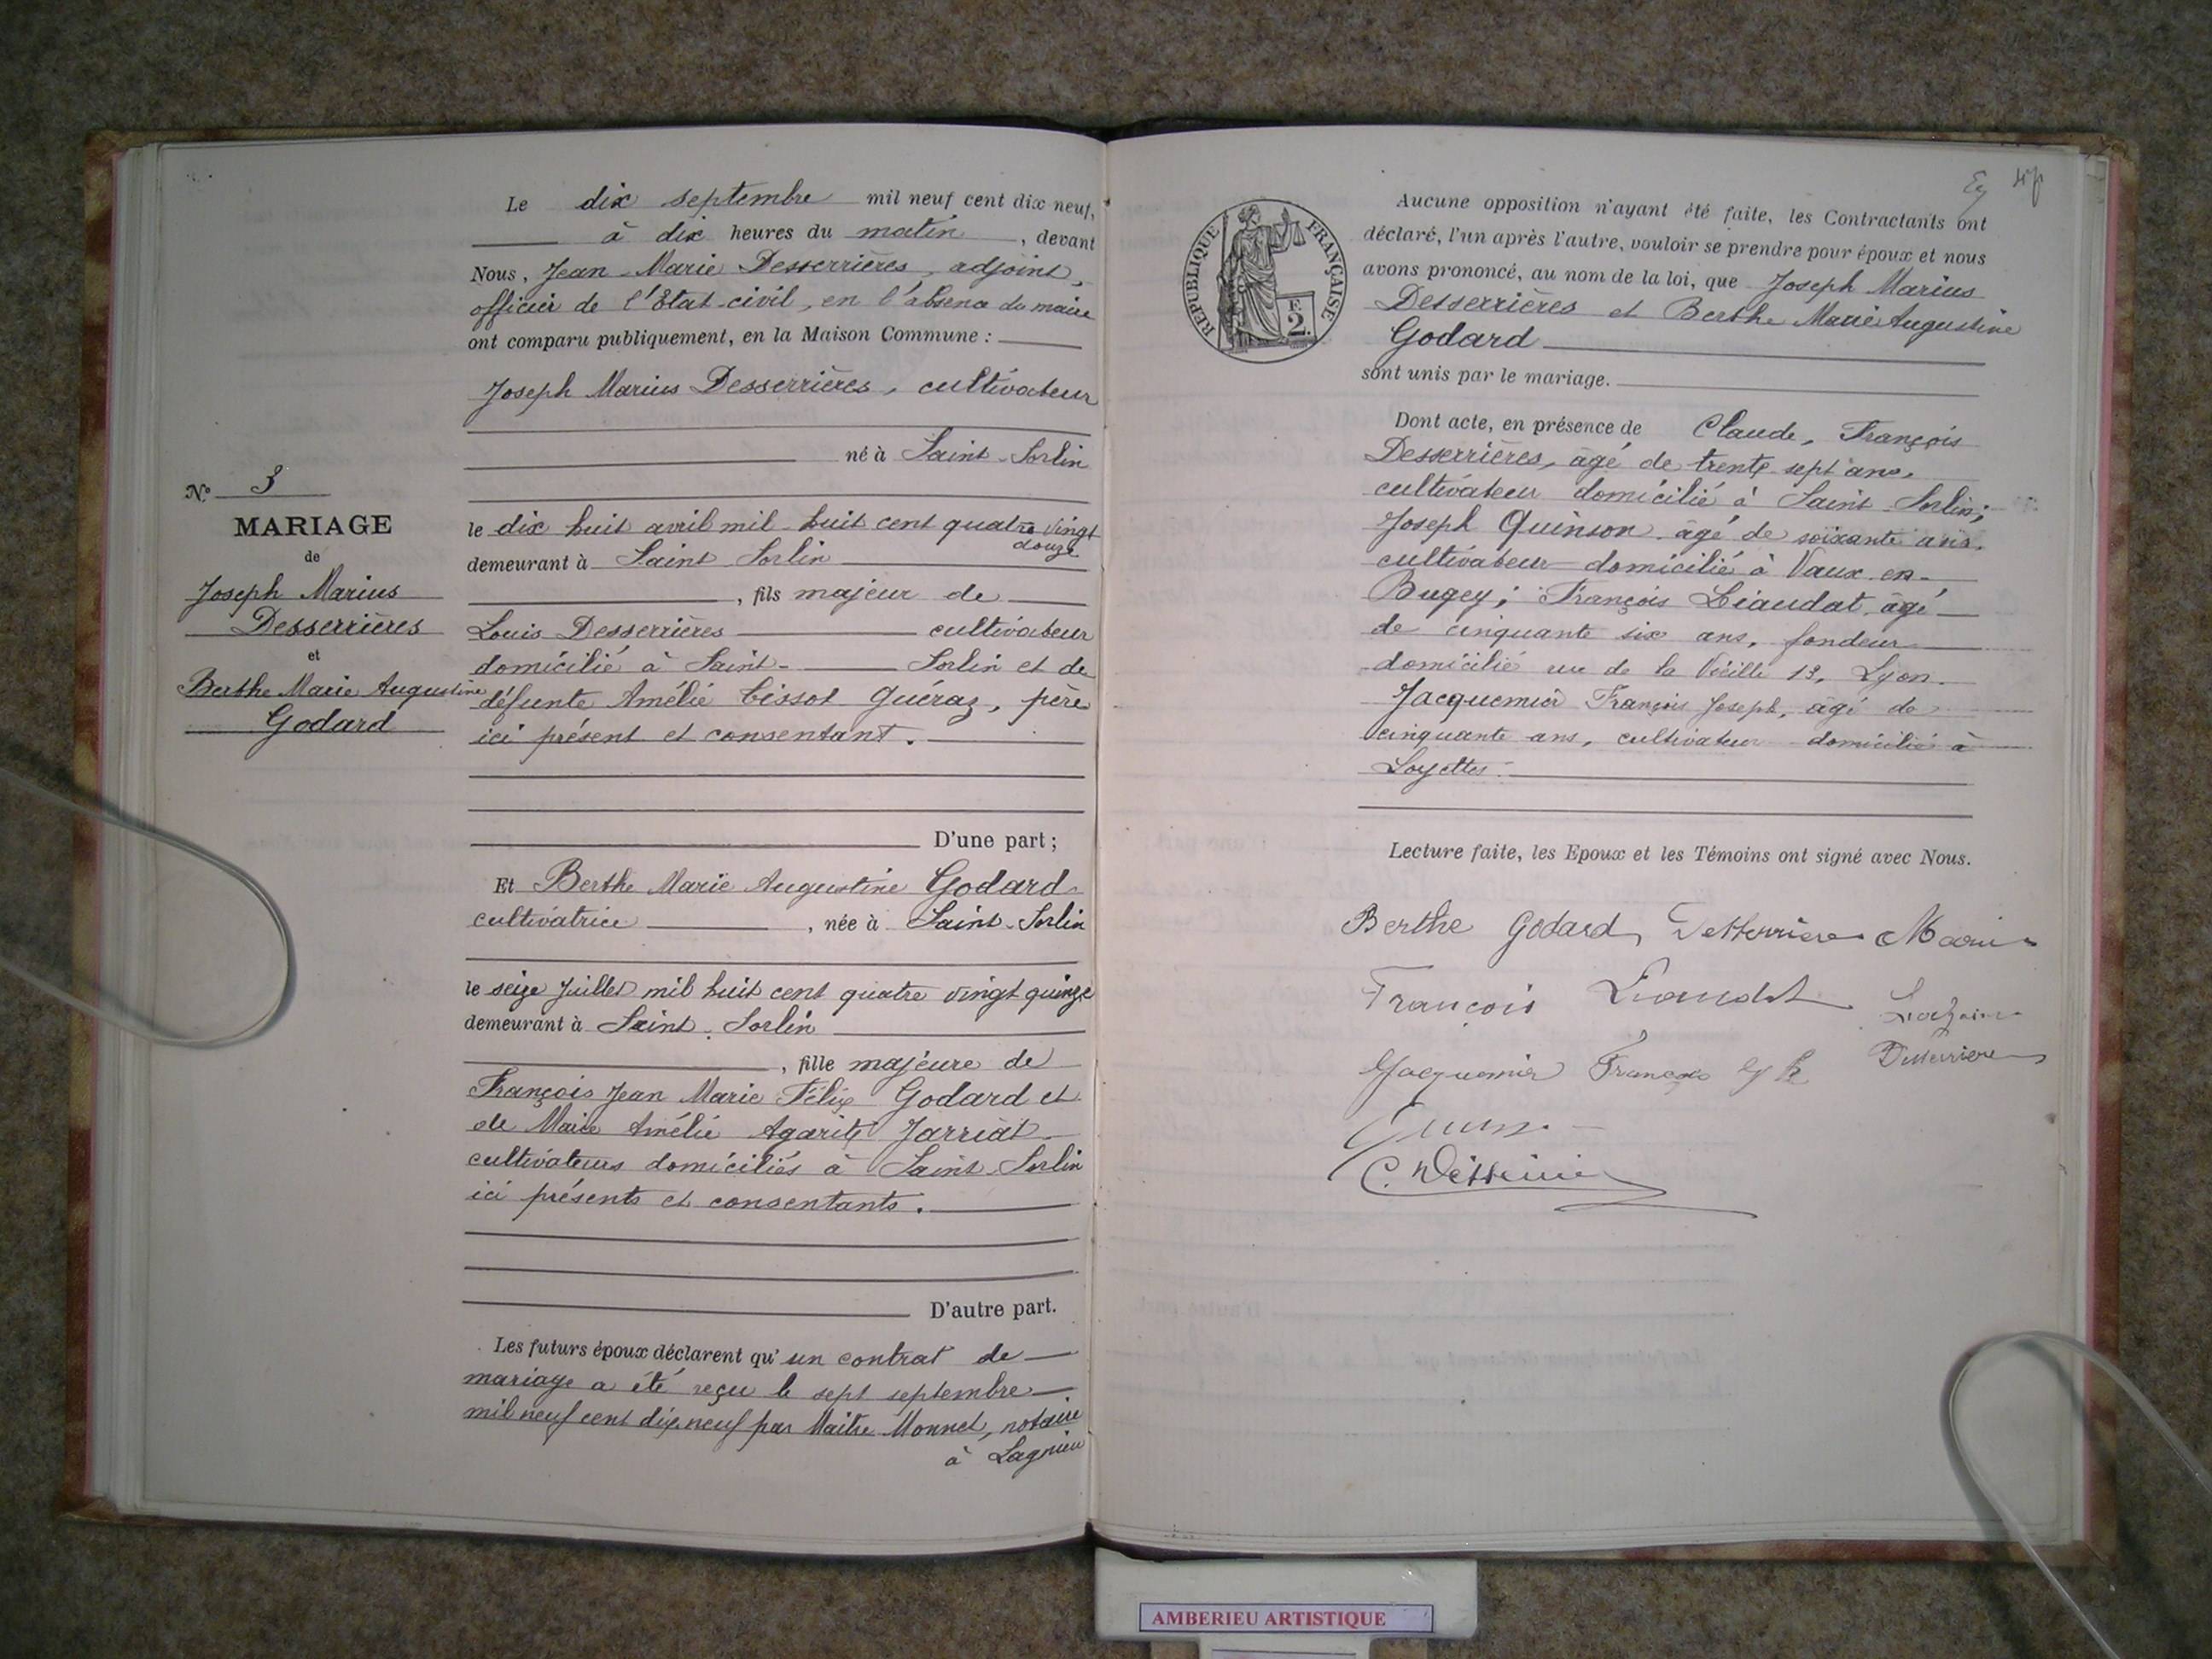 Le dix septembre mil neuf cent dix neuf,
à dix heures du matin, devant
Nous, Jean-Marie Desserrières, adjoint,
officier de l'Etat-civil, en l'absence du maire
ont comparu publiquement, en la Maison Commune :
Joseph Marius Desserrières, cultivateur
né à Saint-Sorlin
le dix huit avril mil huit cent quatre vingt
douze
demeurant à Saint Sorlin
, fils majeur de
Louis Desserrières cultivateur
domicilié à Saint- Sorlin et de
défunte Amélie Tissot Guéraz, père
ici présent et consentant.
D'une part ;
Et Berthe Marie Augustine Godard
cultivatrice, née à Saint-Sorlin
le seize Juillet mil huit cent quatre vingt quinze
demeurant à Saint-Sorlin
, fille majeure de
François Jean Marie Félix Godard et
de Marie Amélie Agarite Jarriat
cultivateurs domiciliés à Saint-Sorlin
ici présents et consentants.
D'autre part.
Les futurs époux déclarent qu'un contrat de
mariage a été reçu le sept septembre
mil neuf cent dix neuf par Maître Monnet, notaire
à Lagnieu
N° 3
MARIAGE
de
Joseph Marius
Desserrières
et
Berthe Marie Augustine
Godard
RÉPUBLIQUE FRANÇAISE
F.
2.
Aucune opposition n'ayant été faite, les Contractants ont
déclaré, l'un après l'autre, vouloir se prendre pour époux et nous
avons prononcé, au nom de la loi, que Joseph Marius
Desserrières et Berthe Marie Augustine
Godard
sont unis par le mariage.
Dont acte, en présence de Claude, François
Desserrières, âgé de trente sept ans,
cultivateur domicilié à Saint-Sorlin ;
Joseph Quinson âgé de soixante ans,
cultivateur domicilié à Vaux-en-
Bugey ; François Liaudat, âgé
de cinquante six ans, fondeur
domicilié rue de la Vieille 13, Lyon.
Jacquemier François Joseph, âgé de
cinquante ans, cultivateur domicilié à
Loyettes.
Lecture faite, les Epoux et les Témoins ont signé avec Nous.
Berthe Godard, Desserrières Marius
François Liaudat
Desserrières
Jacquemier François
C. Desserrières
AMBERIEU ARTISTIQUE